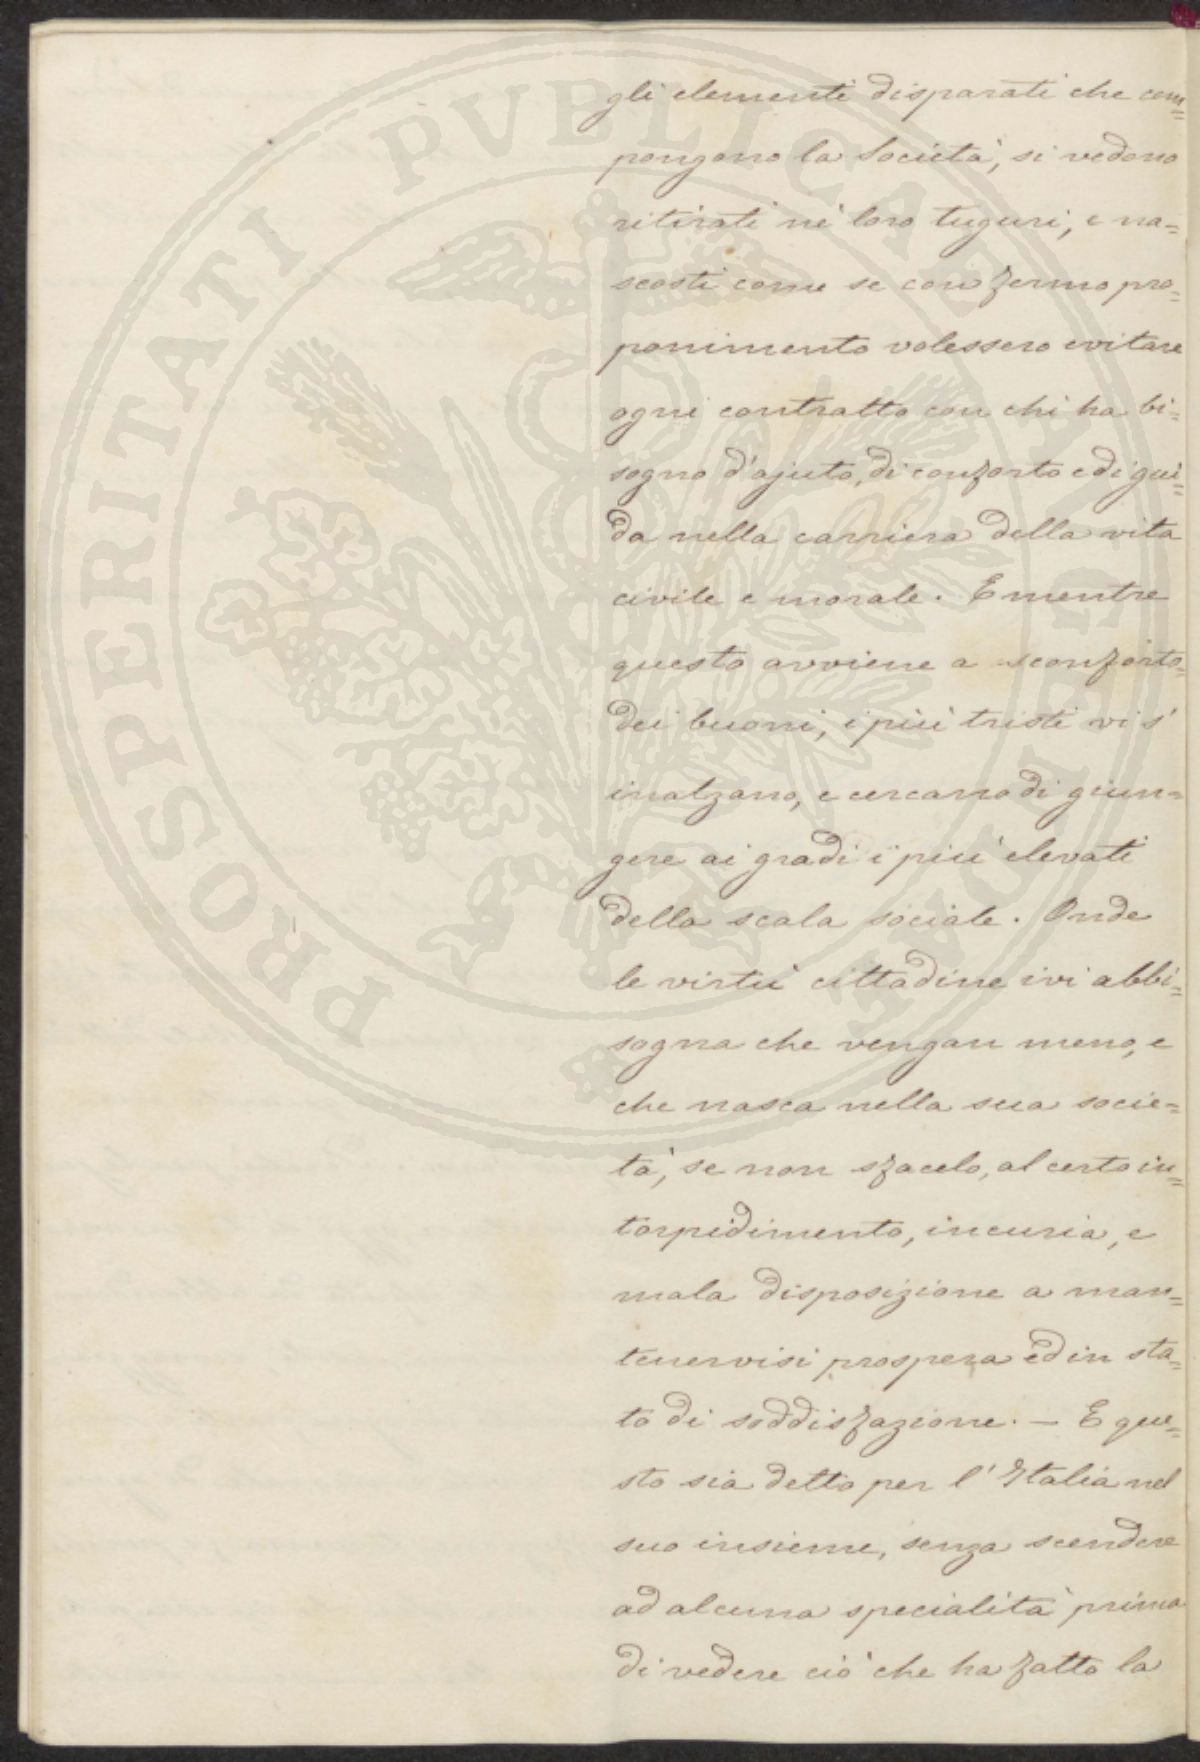 gli elementi disparati che com=
pongono la Società, si vedono
ritirati nè loro tuguri, e na=
scosti come se con fermo pro=
ponimento volessero evitare
ogni contratto con chi ha bi=
sogno d'ajuto, di conforto e di gui=
da nella carriera della vita
civile e morale. E mentre
questo avviene a sconforto
dei buoni, i più tristi vi s'
inalzano, e cercano di giun=
gere ai gradi i più elevati
della scala sociale. Onde
le virtù cittadine ivi abbi=
sogna che vengan meno, e
che nasca nella sua socie=
tà, se non sfacelo, al certo in=
torpidimento, incuria, e
mala disposizione a man=
tenervisi prospera ed in sta=
to di soddisfazione. — E que=
sto sia detto per l'Italia nel
suo insieme, senza scendere
ad alcuna specialità prima
di vedere ciò che ha fatto la
PROSPERITATI PVBLICAE